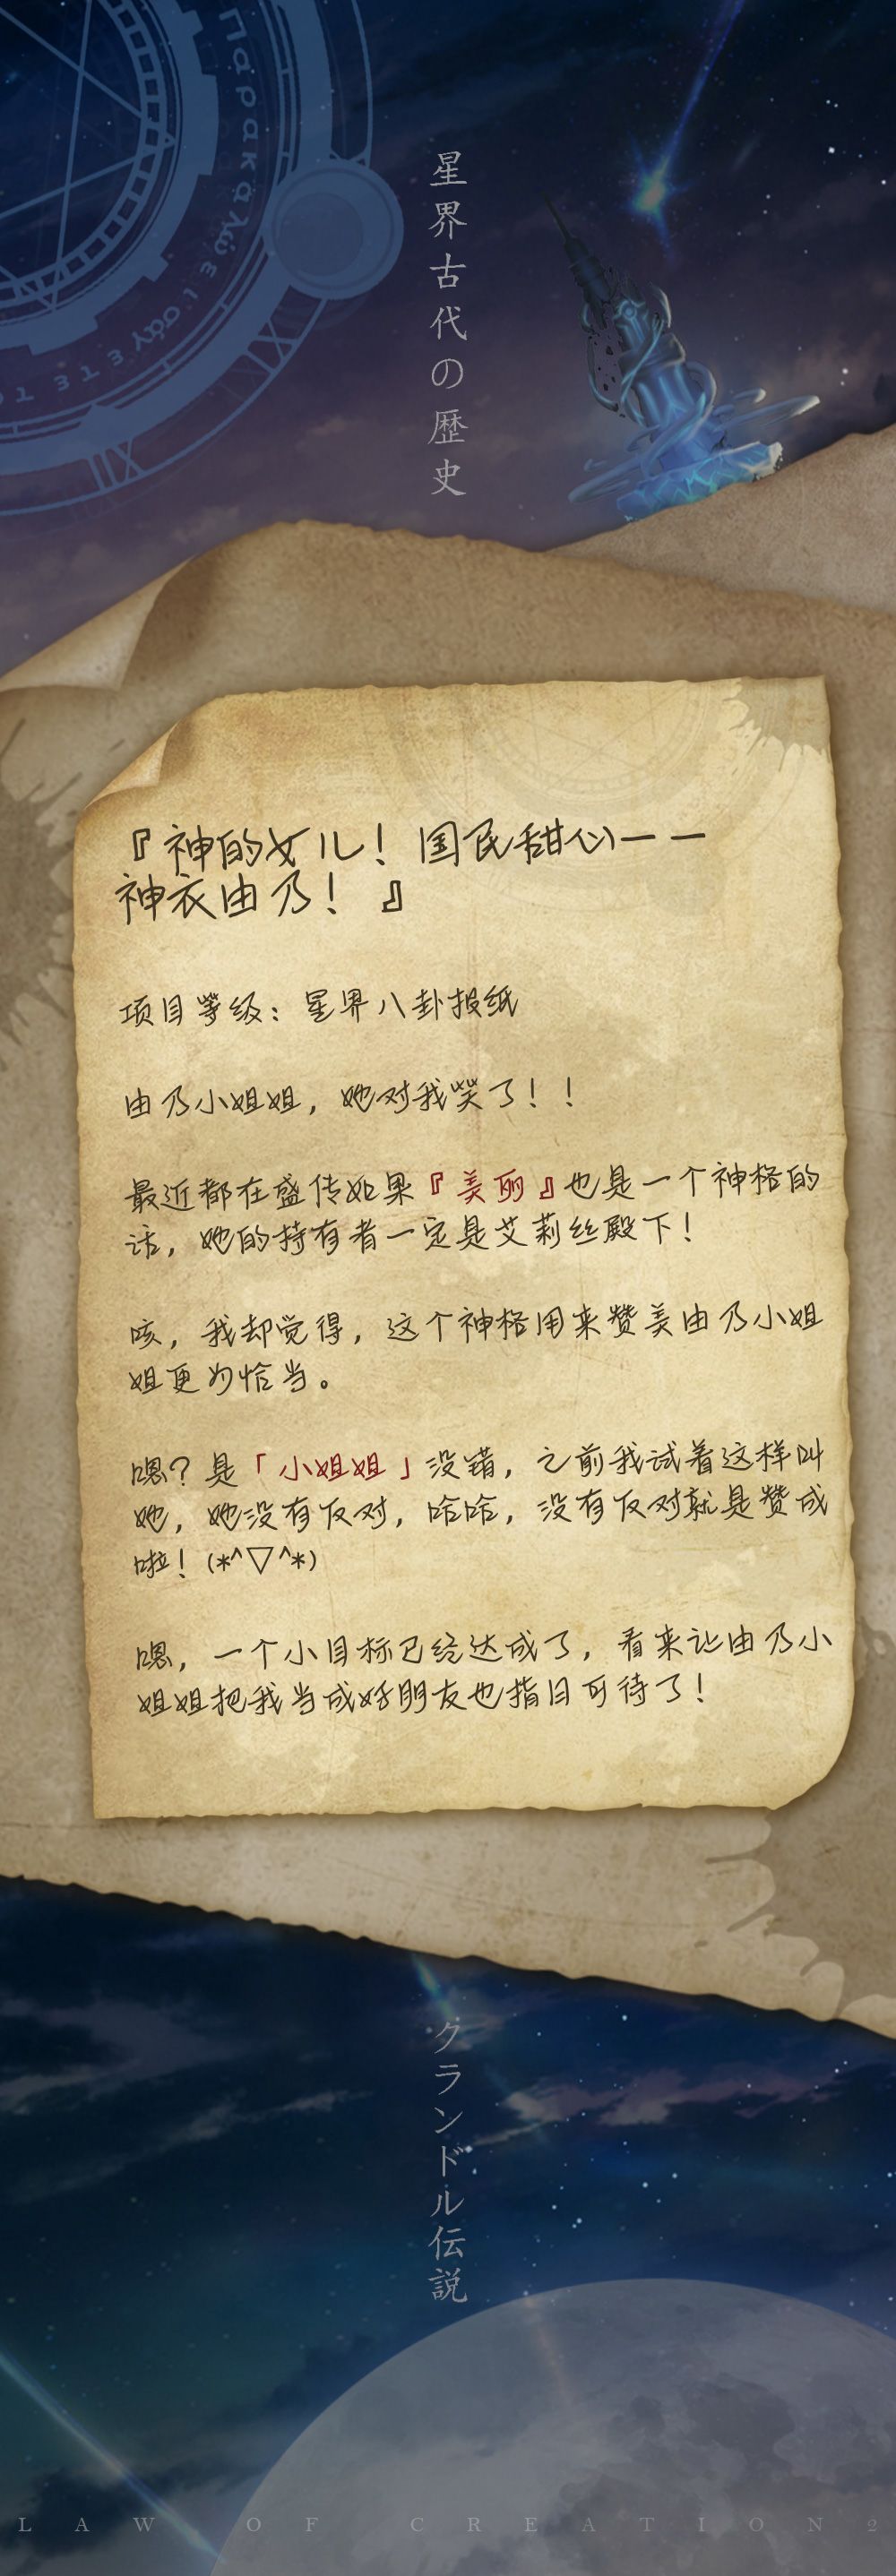 Παρακαλώ εισάγετε το
星界古代の歴史
『神的女儿！国民甜心——
神衣由乃！ 』
项目等级：星界八卦报纸
由乃小姐姐，她对我笑了！！
最近都在盛传如果『美丽』也是一个神格的
话，她的持有者一定是艾莉丝殿下！
咳，我却觉得，这个神格用来赞美由乃小姐
姐更为恰当。
嗯？是「小姐姐」没错，之前我试着这样叫
她，她没有反对，哈哈，没有反对就是赞成
啦！(*^▽^*)
嗯，一个小目标已经达成了，看来让由乃小
姐姐把我当成好朋友也指日可待了！
クランドル伝説
LAW OF CREATION2